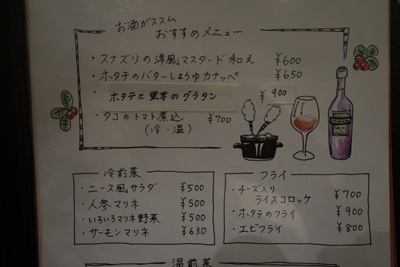 お酒がススム
おすすめメニュー
・スナズリの洋風マスタード和え ¥600
・ホタテのバターしょうゆカナッペ ¥650
ホタテと里芋のグラタン ¥900
・タコのトマト煮込 ¥700
(冷・温)
冷前菜
・ニース風サラダ ¥500
・人参マリネ ¥500
・いろいろマリネ野菜 ¥500
・サーモンマリネ ¥630
フライ
・チーズ入り
ライスコロッケ ¥700
・ホタテのフライ ¥900
・エビフライ ¥800
温前菜